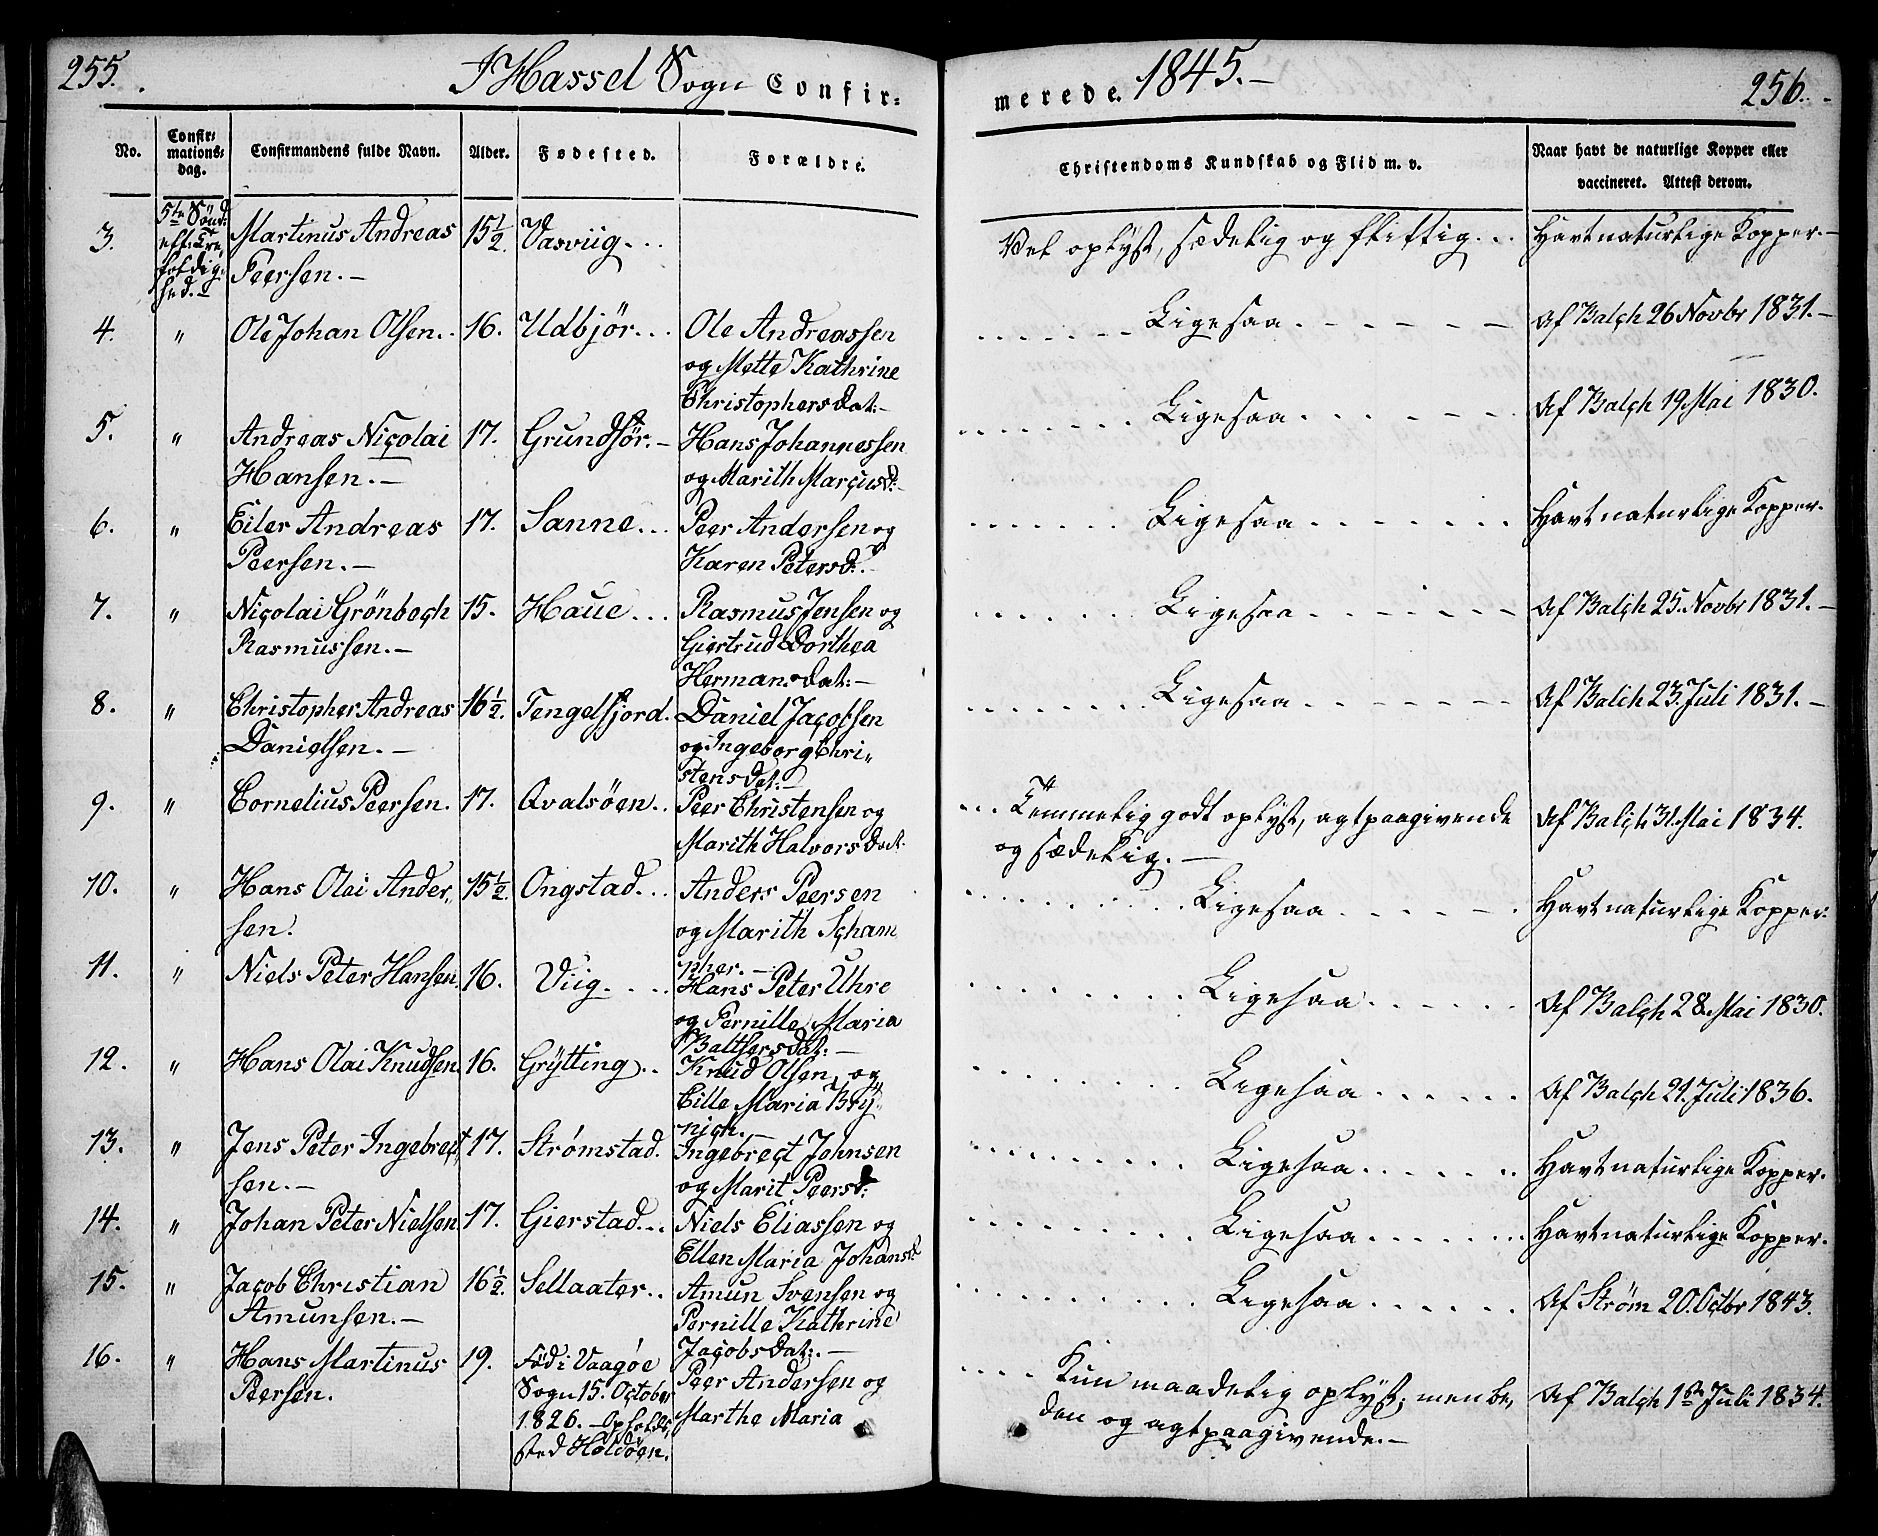 255. I Hassel Sogn Confir-
merede. 1845.- 256.
No. Confir-mations-dag. Confirmandens fulde Navn. Alder. Fødested. Forældre.
Christendoms Kundskab og Flid m. v. Naar havt de naturlige Kopper eller
vaccineret. Attest derom.
3. 5te Sönd: Martinus Andreas 15 1/2. Vasviig... Vel oplyst, sædelig og flittig... Havt naturlige Kopper.-
eft. Tre
foldig- Peersen.-
hed.-
4. " Ole Johan Olsen.. 16. Udbjör... Ole Andreassen Ligesaa. Af Balch 26 Novbr 1831.-
og Mette Kathrine
Christophersdat:-
5. " Andreas Nicolai 17. Grundför.- Hans Johannessen Ligesaa. Af Balch 19 Mai 1830.
Hansen.- og Marith Marcusd:-
6. " Eiler Andreas 17. Sanne... Peer Andersen og Ligesaa. Havt naturlige Kopper.
Peersen.- Karen Petersd:-
7. " Nicolai Grönbech 15. Haue... Rasmus Jensen og Ligesaa. Af Balch 25. Novbr 1831.-
Rasmussen.- Giertrud Dorthea
Hermansdat:-
8. " Christopher Andreas 16 1/2. Tengelfjord. Daniel Jacobsen Ligesaa. Af Balch 23. Juli 1831.-
Danielsen.- og Ingeborg Chri-
stensdat:-
9. " Cornelius Peersen. 17. Qvalsöen.. Peer Christensen og ... Temmelig godt oplyst, agtpaagivende Af Balch 31. Mai 1834.
Marith Halvorsdat. og sædelig.-
10. " Hans Olai Ander- 15 1/2. Ongstad... Anders Peersen Ligesaa. Havt naturlige Kopper.
sen. og Marith Scham
pher.-
11. " Niels Peter Hansen. 16. Viig.... Hans Peter Uhre Ligesaa. Af Balch 28. Mai 1830.
og Pernille Maria
Balthersdat:-
12. " Hans Olai Knudsen. 16. Grÿtting.. Knud Olsen og Ligesaa. Af Balch 21. Juli 1836.
Cille Maria Brÿ-
nich.-
13. " Jens Peter Ingebrect- 17. Strømstad. Ingebrect Johnsen Ligesaa. Havt naturlige Kopper.
sen.- og Marit Peersd:
14. " Johan Peter Nielsen 17. Gierstad... Niels Eliassen og Ligesaa. Havt naturlige Kopper.
Ellen Maria Johansd
15. " Jacob Christian 16 1/2. Sellaater.. Amun Svensen og Ligesaa. Af Strøm 20. Octbr 1843.
Amunsen.- Pernille Kathrine
Jacobsdat:.-
16. " Hans Martinus 19. Föd i Vaagøe Peer Andersen og ... Kun maadelig oplyst, men be- Af Balch 1ste Juli 1834.
Peersen. Sogn 15. October Marthe Maria den og agtpaagivende.-
1826.- Opholds-
sted Holdöen.